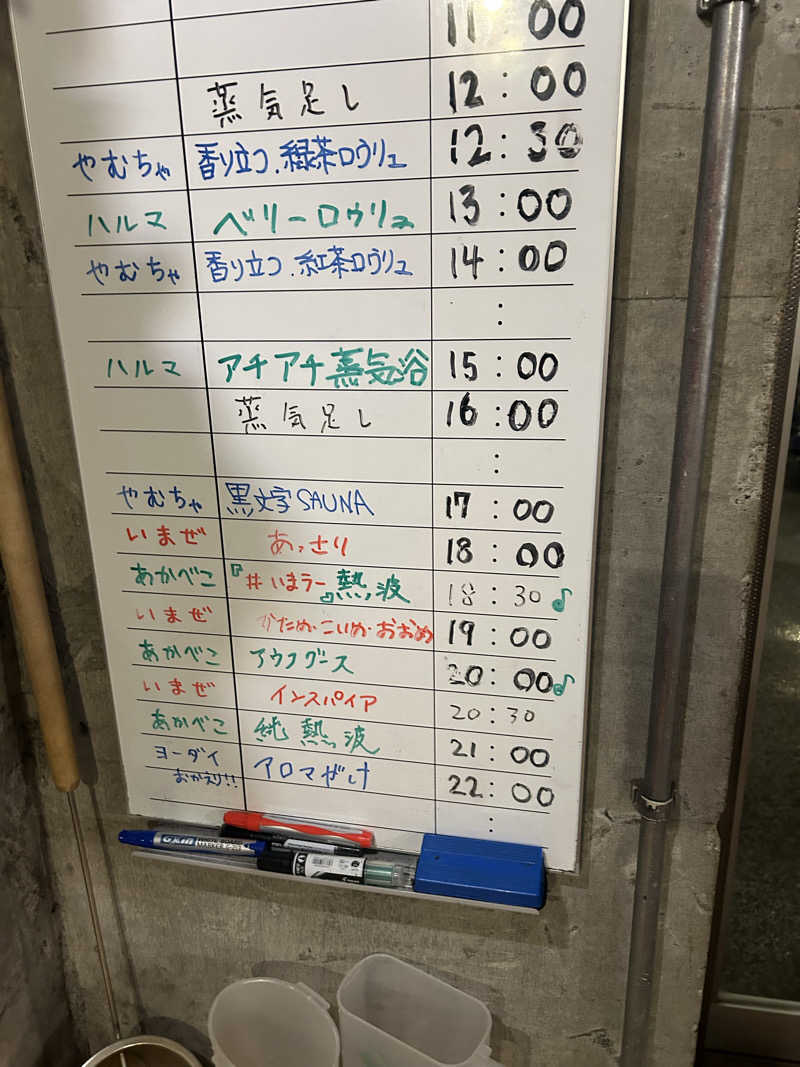 11:00
蒸気足し 12:00
やむちゃ 香り立つ.緑茶ロウリュ 12:30
ハルマ ベリーロウリュ 13:00
やむちゃ 香り立つ.紅茶ロウリュ 14:00
:
ハルマ アチアチ蒸気浴 15:00
蒸気足し 16:00
:
やむちゃ 黒文字SAUNA 17:00
いまぜ あっさり 18:00
あかべこ 『#いまラー熱波』 18:30♪
いまぜ かため・こいめ・おおめ 19:00
あかべこ アウフグース 20:00♪
いまぜ インスパイア 20:30
あかべこ 純熱波 21:00
ヨーダイ アロマぜめ 22:00
おかえり!!
: